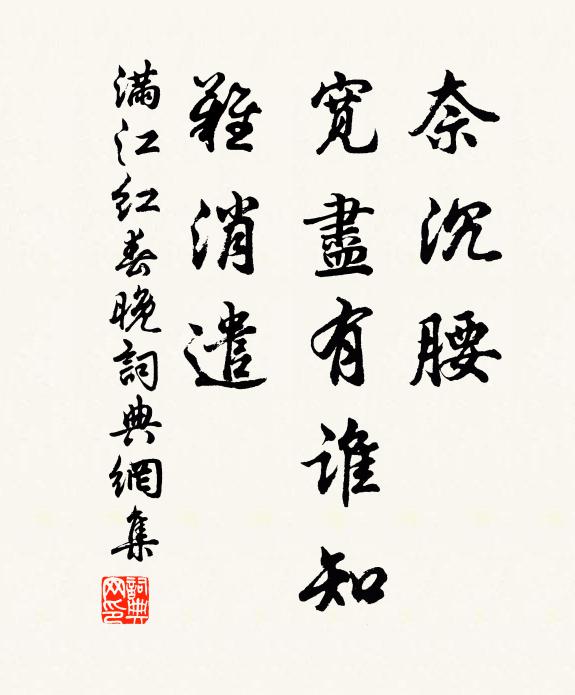 奈沉腰
寬盡有誰知
難消遣
滿江紅春晚詞典網集
詞典網印